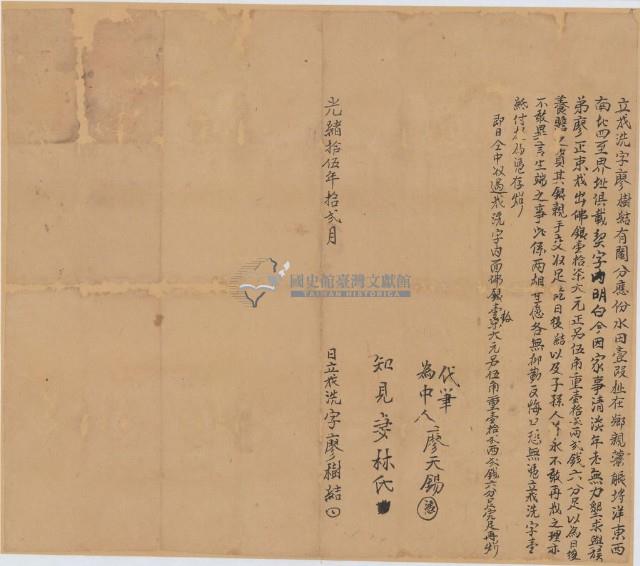 立找洗字廖樹結有鬮分應份水田壹段址在鄉親藔𫧃埒洋東西
南北四至界址俱載契字內明白今因家事清淡年老無力墾求與族
弟廖正東找出佛銀壹拾柒大元正另伍角重壹拾貳兩貳錢六分足以為日後
養贍之資其銀親手交收足訖日後結以及子孫人等永不敢再找之理亦
不敢異言生端之事此係兩相甘愿各無抑勒反悔口恐無憑立找洗字壹
紙付執為憑存炤
即日仝中收過找洗字內面佛銀壹拾大元另伍角重壹拾貳兩貳錢六分足完足再炤
代筆
為中人廖天錫
知見妻林氏
光緒拾伍年拾貳月
日立找洗字廖樹結
國史館臺灣文獻館
TAIWAN HISTORICA